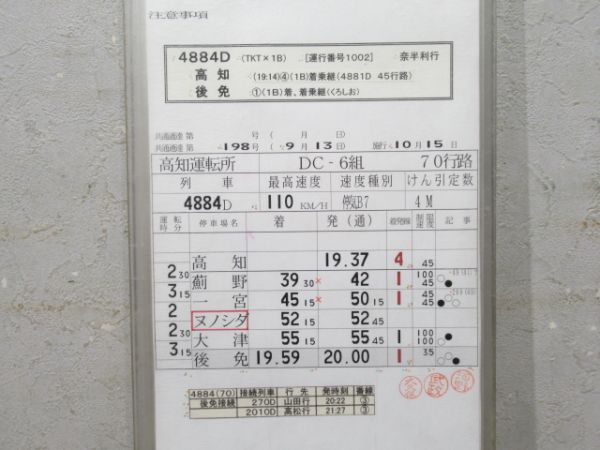 注意事項
4884D (TKT×1B) [運行番号1002] 奈半利行
高 知 (19:14)④(1B)着乗継(4881D 45行路)
後 免 ①(1B)着、着乗継(くろしお)
共通通達 第 号( 月 日)
共通通達 第 198 号( 9月 13日) 施行 10月 15日
高知運転所 DC-6組 70行路
列車 最高速度 速度種別 けん引定数
4884D 110 KM/H 停気B7 4M
運転時分 停車場名 着 発(通) 着発線 制限速度 記事
高 知 19.37 4 45
2 30
薊 野 39 30 × 42 1 100 45
3 15
一 宮 45 15 × 50 15 1 45 45
2
ヌノシダ 52 15 52 45
2 30
大 津 55 15 55 45 1 100 100
3 15
後 免 19.59 20.00 1 35
4884(70) 接続列車 行先 発時刻 番線
後免接続 270D 山田行 20:22 ③
2010D 高松行 21:27 ③